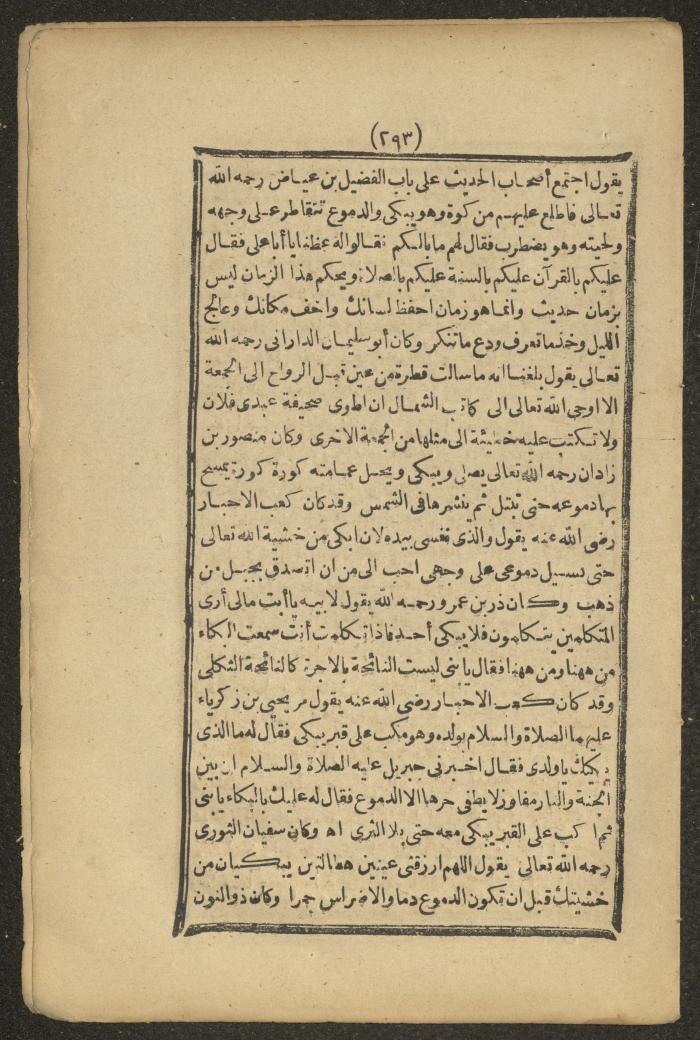 (٢٩٣)
يقول اجتمع أصحاب الحديث على باب الفضيل بن عياض رحمه الله
تعالى فاطلع عليهم من كوة وهو يبكى والدموع تتقاطر على وجهه
ولحيته وهو يضطرب فقال لهم ما بالكم فقالوا له عظنا يا أبا على فقال
عليكم بالقرآن عليكم بالسنة عليكم بالصلاة ويحكم هذا الزمان ليس
بزمان حديث وانما هو زمان احفظ لسانك واخف مكانك وعالج
الليل وخذ ما تعرف ودع ما تنكر وكان أبو سليمان الدارانى رحمه الله
تعالى يقول بلغنا انه ما سالت قطرة من عين قبل الرواح الى الجمعة
الا اوحى الله تعالى الى كاتب الشمال ان اطوى صحيفة عبدى فلان
ولا تكتب عليه خطيئة الى مثلها من الجمعة الاخرى وكان منصور بن
زادان رحمه الله تعالى يصلى ويبكى ويحل عمامته كورة كورة يمسح
بها دموعه حتى تبتل ثم ينشرها فى الشمس وقد كان كعب الاحبار
رضى الله عنه يقول والذى نفسى بيده لان ابكى من خشية الله تعالى
حتى تسيل دموعى على وجهى احب الى من ان اتصدق بجبل من
ذهب وكان ذر بن عمرو رحمه الله يقول لابيه يا أبت مالى أرى
المتكلمين يتكلمون فلا يبكى أحد فاذا تكلمت أنت سمعت البكاء
من ههنا ومن ههنا فقال يا بنى ليست النائحة بالاجرة كالنائحة الثكلى
وقد كان كعب الاحبار رضى الله عنه يقول مر يحيى بن زكرياء
عليهما الصلاة والسلام بولده وهو مكب على قبر يبكى فقال له ما الذى
يبكيك يا ولدى فقال اخبرنى جبريل عليه الصلاة والسلام ان بين
الجنة والنار مفاوز لا يطفى حرها الا الدموع فقال له عليك بالبكاء يا بنى
ثم اكب على القبر يبكى معه حتى بلا الثرى اه وكان سفيان الثورى
رحمه الله تعالى يقول اللهم ارزقنى عينين هطالتين يبكيان من
خشيتك قبل ان تكون الدموع دما والاضراس جمرا وكان ذو النون